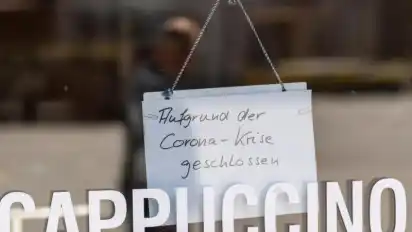 Aufgrund der
Corona-Krise
geschlossen
CAPPUCCINO